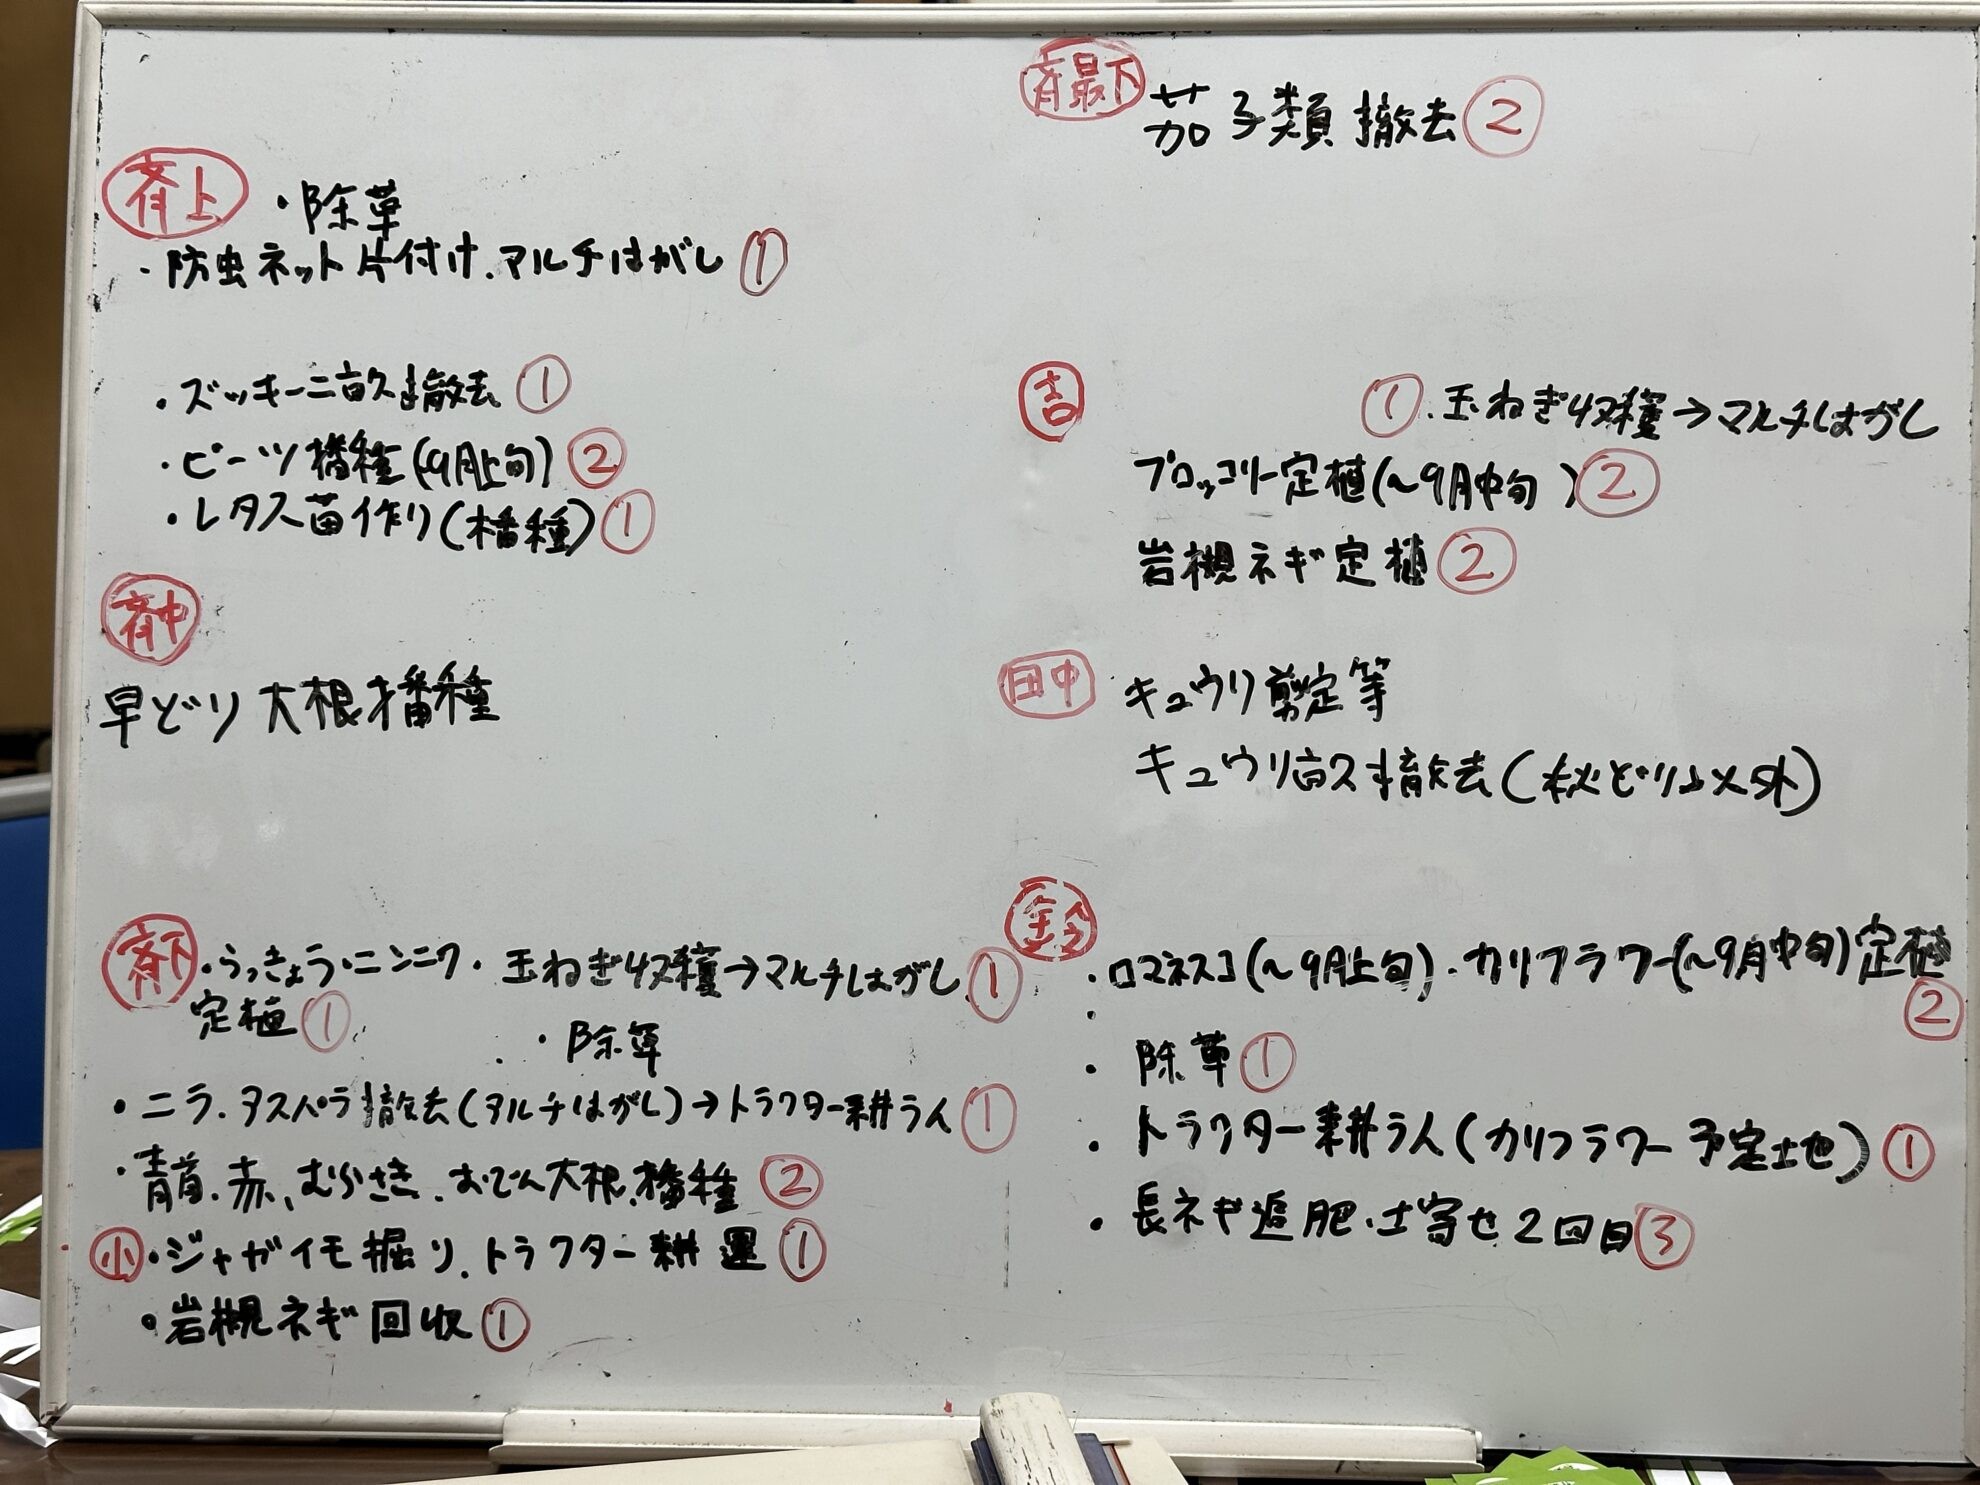 斉上 ・除草
・防虫ネット片付け.マルチはがし ①
・ズッキーニ畝撤去 ①
・ビーツ播種(~9月上旬) ②
・レタス苗作り(播種) ①
斉中
早どり大根播種
斉下 ・らっきょう・ニンニク・玉ねぎ収穫→マルチはがし ①
定植 ①
・除草
・ニラ.アスパラ撤去(マルチはがし)→トラクター耕うん ①
・青首.赤、むらさき.おでん大根.播種 ②
小 ・ジャガイモ掘り.トラクター耕運 ①
・岩槻ネギ回収 ①
斉最下 茄子類撤去 ②
吉 ①.玉ねぎ収穫→マルチはがし
ブロッコリー定植(~9月中旬) ②
岩槻ネギ定植 ②
田中 キュウリ剪定等
キュウリ畝撤去(秋どり以外)
鈴
・ロマネスコ(~9月上旬)・カリフラワー(~9月中旬)定植
②
・除草 ①
・トラクター耕うん(カリフラワー予定土地) ①
・長ネギ追肥.土寄せ2回目 ③